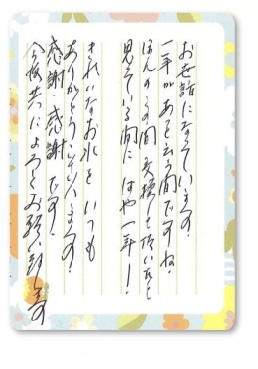 お世話になっています。
一年があっと云う間ですね。
ほんのこの間交換して頂いたと
思っている間にはや一年！
きれいなお水をいつも
ありがとうございます。
感謝感謝です。
今後共によろしくお願い致します